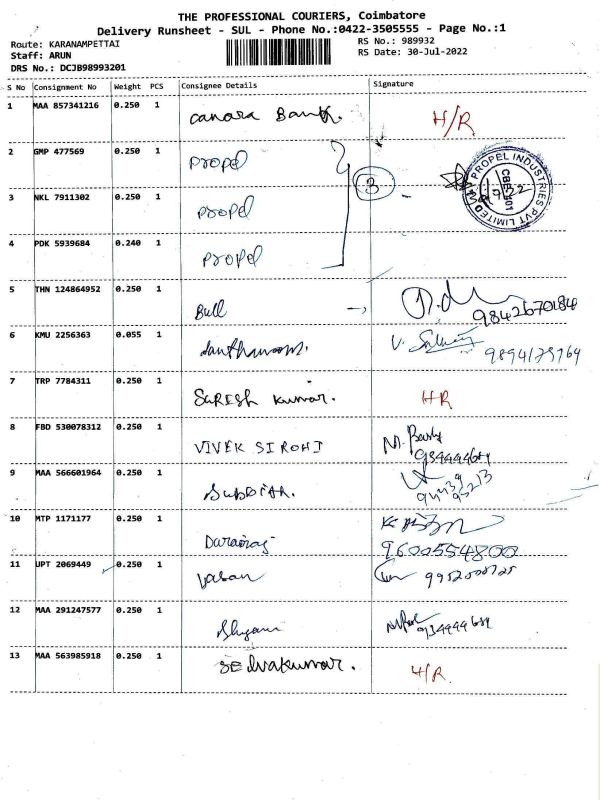 THE PROFESSIONAL COURIERS, Coimbatore
Delivery Runsheet - SUL - Phone No.:0422-3505555 - Page No.:1
Route: KARANAMPETTAI RS No.: 989932
Staff: ARUN RS Date: 30-Jul-2022
DRS No.: DCJB98993201
S No Consignment No Weight PCS Consignee Details Signature
1 MAA 857341216 0.250 1 Canara Bank. H/R
2 GMP 477569 0.250 1 Propel
PROPEL INDUSTRIES PVT LIMITED
3 NKL 7911302 0.250 1 Propel 3
4 PDK 5939684 0.240 1 Propel
5 THN 124864952 0.250 1 Bull → 9842670184
6 KMU 2256363 0.055 1 9894175764
7 TRP 7784311 0.250 1 SuRESh Kumar. HR
8 FBD 530078312 0.250 1 VIVEK SIROHI
9 MAA 566601964 0.250 1
10 MTP 1171177 0.250 1 Durairaj 9600554800
11 UPT 2069449 0.250 1 Vasan
12 MAA 291247577 0.250 1 Shyam
13 MAA 563985918 0.250 1 SElvakumar. H/R